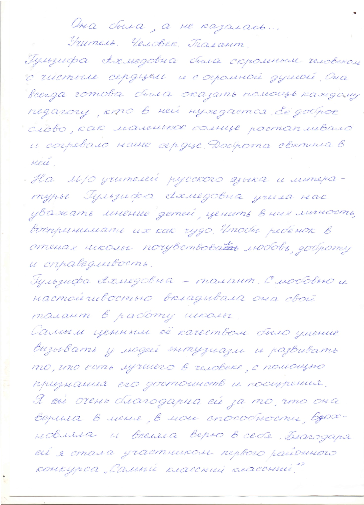 Она была, а не казалась...
Учитель. Человек. Талант.
Гульзифа Ахмедовна была скромным человеком
с чистым сердцем и с огромной душой. Она
всегда готова была оказать помощь каждому
педагогу, кто в ней нуждается. Её доброе
слово, как маленькое солнце растапливало
и согревало наше сердце. Доброта светила в
ней.
На МО учителей русского языка и литера-
туры Гульзифа Ахмедовна учила нас
уважать мнение детей, ценить в них личность,
воспринимать их как чудо. Чтобы ребёнок в
стенах школы почувствовал любовь, доброту
и справедливость.
Гульзифа Ахмедовна - талант. С любовью и
настойчивостью вкладывала она свой
талант в работу школы.
Самым ценным её качеством было умение
вызывать у людей энтузиазм и развивать
то, что есть лучшего в человеке, с помощью
признания его достоинств и поощрения.
Я ей очень благодарна ей за то, что она
верила в меня, в мои способности, вдох-
новляла и вселяла веру в себя. Благодаря
ей я стала участником первого районного
конкурса "Самый классный классный".